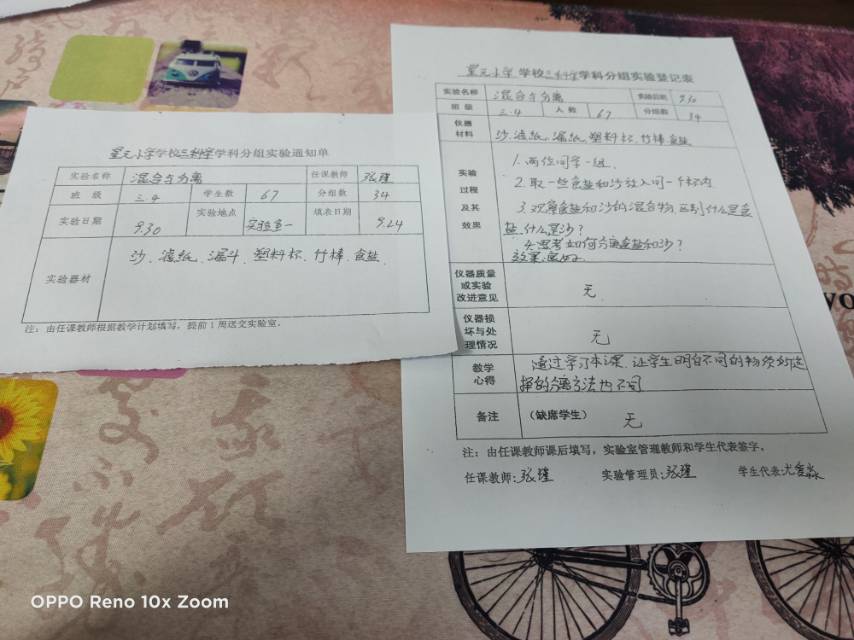 星元小学学校三科学学科分组实验通知单
实验名称 混合与分离 任课教师 张瑾
班级 三.4 学生数 67 分组数 34
实验日期 9.30 实验地点 实验室一 填表日期 9.24
实验器材 沙、滤纸、漏斗、塑料杯、竹棒、食盐
注:由任课教师根据教学计划填写,提前1周送交实验室。
星元小学学校三科学学科分组实验登记表
实验名称 混合与分离 实验日期 9.30
班级 三.4 人数 67 分组数 34
仪器材料 沙、滤纸、漏纸、塑料杯、竹棒、食盐
实验过程及其效果
1.两位同学一组.
2.取一些食盐和沙放入同一个杯内
3.观察食盐和沙的混合物,区别什么是食
盐,什么是沙?
4.思考如何分离食盐和沙?
效果:良好
仪器质量或实验改进意见 无
仪器损坏与处理情况 无
教学心得 通过学习本课,让学生明白不同的物质的选
择的分离方法也不同
备注 (缺席学生) 无
注:由任课教师课后填写,实验室管理教师和学生代表签字。
任课教师:张瑾 实验管理员:张瑾 学生代表:
OPPO Reno 10x Zoom